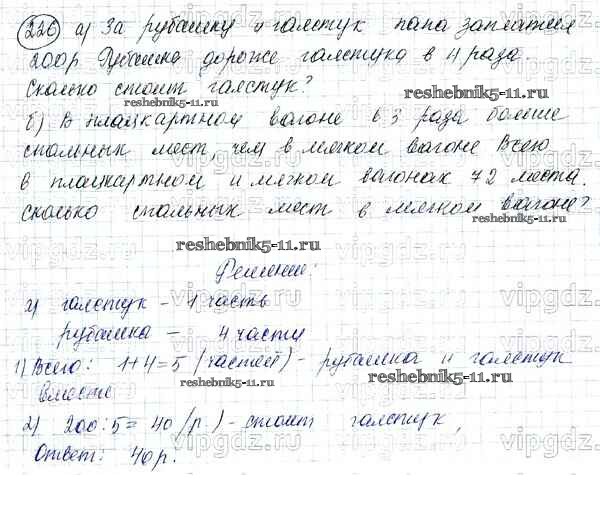 226 а) За рубашку и галстук папа заплатил
200р. Рубашка дороже галстука в 4 раза.
Сколько стоит галстук?
reshebnik5-11.ru
б) В плацкартном вагоне в 3 раза больше
спальных мест, чем в мягком вагоне. Всего
в плацкартном и мягком вагонах 72 места.
Сколько спальных мест в мягком вагоне?
reshebnik5-11.ru
reshebnik5-11.ru
Решение:
а) галстук – 1 часть
рубашка – 4 части
1) Всего: 1+4=5 (частей) – рубашка и галстук
вместе
reshebnik5-11.ru
reshebnik5-11.ru
2) 200:5=40 (р.) – стоит галстук,
Ответ: 40р.
vipgdz.